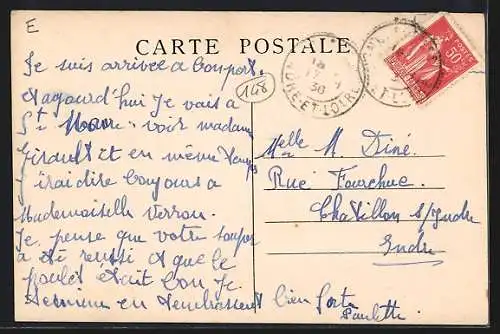 E
CARTE POSTALE
Je suis arrivée a bon port.
aujourd'hui Je vais a
St Maure voir madame
Girault et en même temps
J'irai dire bonjour a
Mademoiselle Verron.
Je pense que votre souper
a été reussi et que le
poulet était bon Je
termine en
148
18
17
36
INDRE-ET-LOIRE
POSTES
50
Melle M. Diné.
Rue Fourchue.
Chatillon s/Indre
Indre
bien forte
Paulette